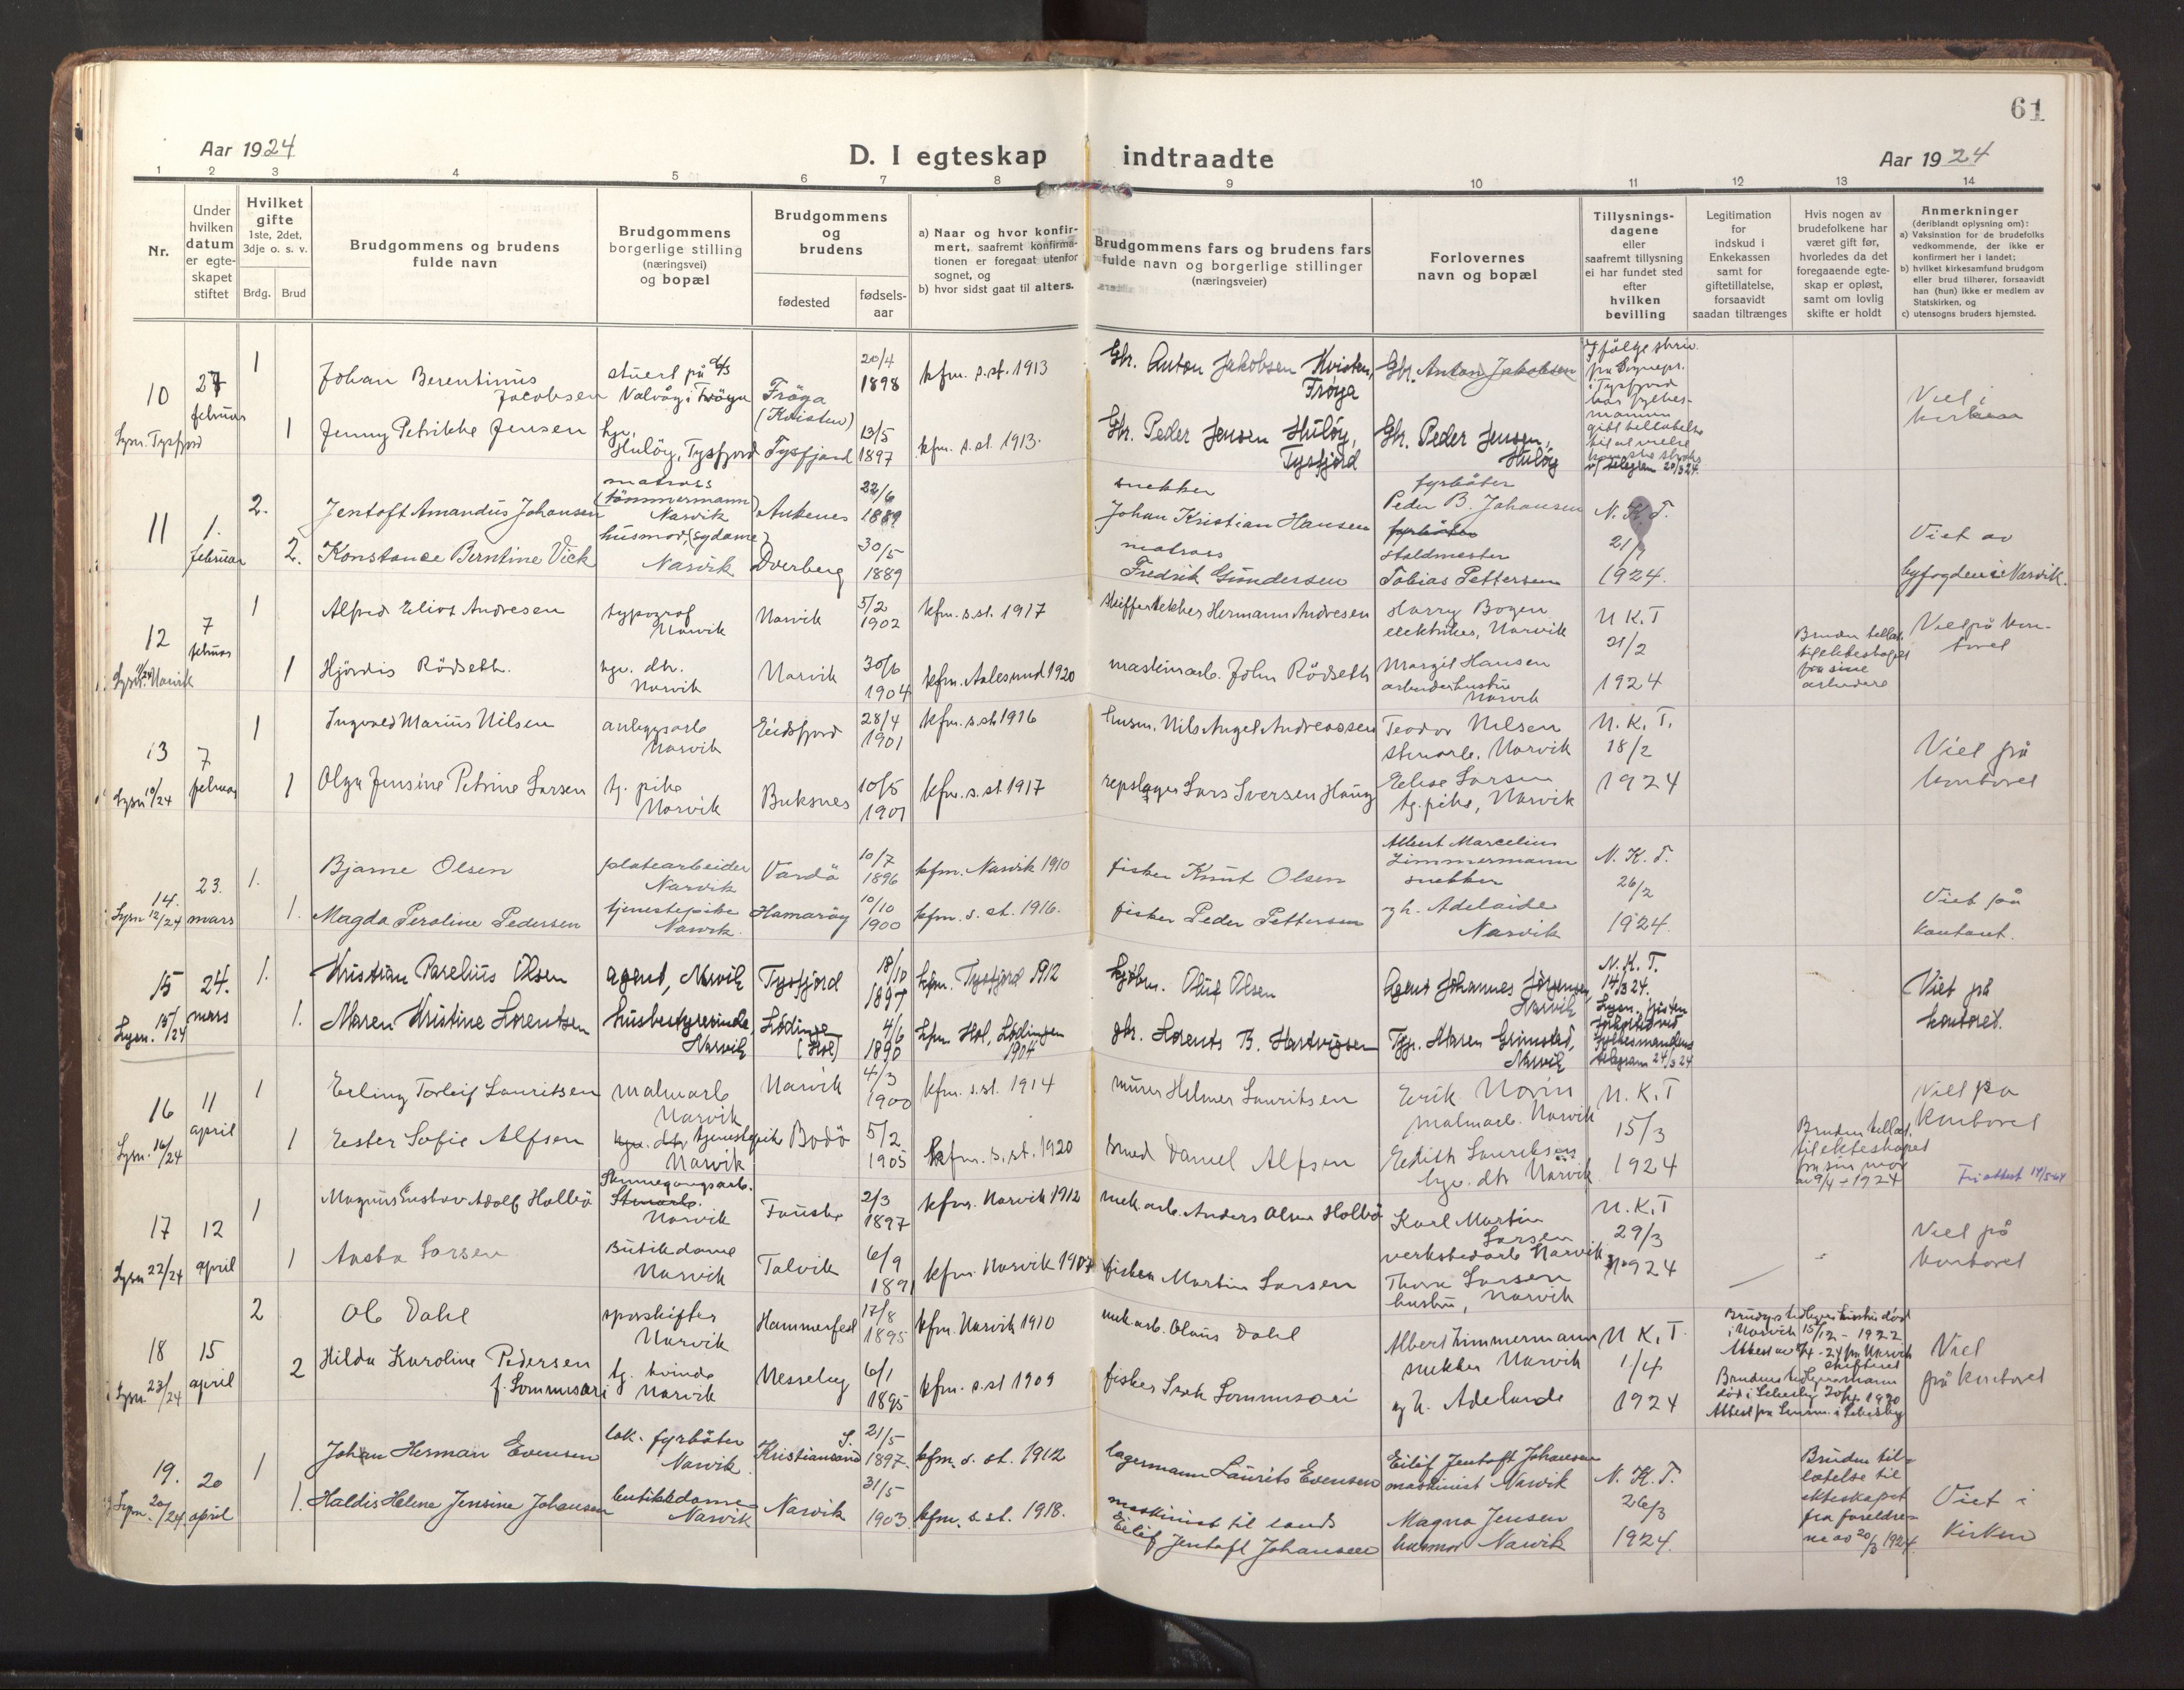 61
Aar 1924
D. I egteskap indtraadte
Aar 1924
1 2 3 4 5 6 7 8 9 10 11 12 13 14
Nr.
Under hvilken datum er egteskapet stiftet
Hvilket gifte 1ste, 2det, 3dje o. s. v.
Brdg. Brud
Brudgommens og brudens fulde navn
Brudgommens borgerlige stilling (næringsvei) og bopæl
Brudgommens og brudens
fødested
fødsels-aar
a) Naar og hvor konfirmert, saafremt konfirmationen er foregaat utenfor sognet, og
b) hvor sidst gaat til alters.
Brudgommens fars og brudens fars fulde navn og borgerlige stillinger (næringsveier)
Forlovernes navn og bopæl
Tillysningsdagene eller saafremt tillysning ei har fundet sted efter hvilken bevilling
Legitimation for indskud i Enkekassen samt for giftetillatelse, forsaavidt saadan tiltrænges
Hvis nogen av brudefolkene har været gift før, hvorledes da det foregaaende egteskap er opløst, samt om lovlig skifte er holdt
Anmerkninger (deriblandt oplysning om):
a) Vaksination for de brudefolks vedkommende, der ikke er konfirmert her i landet;
b) hvilket kirkesamfund brudgom eller brud tilhører, forsaavidt han (hun) ikke er medlem av Statskirken, og
c) utensogns bruders hjemsted.
10 27 februar
Lysn. Tysfjord
1 Johan Berentinus Jacobsen
stuert på d/s Valvåg i Frøya
Frøya (Kvisten)
20/4 1898
kfm. s. st. 1913
Gbr. Anton Jakobsen Kvisten, Frøya
Gbr. Anton Jakobsen
Viet i kirken
1 Jenny Petrikke Jensen
Hulöy, Tysfjord
Tysfjord
13/5 1897
kfm. s. st. 1913.
Gbr. Peder Jensen Hulöy, Tysfjord
Gbr. Peder Jensen, Hulöy
telegram 20/3 24.
11 1. februar
2. Jentoft Amandus Johansen
matros (tömmermann) Narvik
Ankenes
22/6 1889
snekker
Johan Kristian Hansen
fyrböter
Peder B. Johansen
fyrböter
N. K. T.
21/1
1924.
Viet av byfogden i Narvik.
2. Konstance Berntine Vick
husmor, (sydame) Narvik
Dverberg
30/5 1889
matros
Fredrik Gundersen
staldmester
Tobias Pettersen
12 7 februar
1 Alfred Elias Andresen
typograf Narvik
Narvik
5/2 1902
kfm. s. st. 1917
skiffertekker Hermann Andresen
Harry Bogen
elektriker, Narvik
N. K. T
21/2
1924
Viet på kontoret
1 Hjördis Rödseth.
hjv. dtr. Narvik
Narvik
30/6 1904
kfm. Aalesund 1920
maskinarb. John Rödseth
Margit Hansen
arbeiderhustru
Narvik
13 7 februar
Lysn 10/24
1 Ingvald Marius Nilsen
anleggsarb Narvik
Eidsfjord
28/4 1901
kfm. s. st 1916
husm. Nils Angel Andreassen
Teodor Nilsen
Narvik
N. K. T.
18/2
1924
Viet på kontoret
1 Olga Jensine Petrine Larsen
tj. pike Narvik
Buksnes
10/5 1901
kfm. s. st 1917
repslager Lars Iversen Haug
Elise Larsen
tj. pike, Narvik
14. 23. mars
Lysn 12/24
1. Bjarne Olsen
platearbeider Narvik
Vardö
10/7 1896
kfm. Narvik 1910
fisker Knut Olsen
Albert Marcelius Zimmermann
snekker
N. K. T.
26/2
1924.
Viet på kontoret.
1. Magda Peroline Pedersen
tjenestepike Narvik
Hamaröy
10/10 1900
kfm. s. st. 1916.
fisker Peder Pettersen
og h. Adelaide
Narvik
15 24. mars
Lysn. 15/24
1. Kristian Parelius Olsen
agent, Narvik
Tysfjord
18/10 1897
kfm. Tysfjord 1912
kjøbm. Oluf Olsen
Agent Johannes Jörgensen, Narvik
N. K. T.
14/3 24.
telegram 24/3 24
Viet på kontoret.
1. Maren Kristine Lorentsen
husbestyrerinde, Narvik
Lödingen (Hol)
4/6 1890
kfm. Hol, Lödingen 1904
gbr. Lorents B. Hartvigsen
Tjgr. Maren Grimstad, Narvik
16 11 april
Lysn. 16/24
1 Erling Torleif Lauritsen
malmarb Narvik
Narvik
4/3 1900
kfm. s. st. 1914
murer Helmer Lauritsen
Erik Norin
malmarb. Narvik
N. K. T
15/3
1924
Viet på kontoret
1 Ester Sofie Alfsen
hjv. dtr tjenestepike Narvik
Bodö
5/2 1905
kfm. s. st. 1920
smed Daniel Alfsen
Edith Lauritsen
hjv. dtr Narvik
Bruden tillat. til ekteskapet fra sin mor av 9/4 - 1924
Friattest 14/5-64
17 12 april
Lysn 22/24
1 Magnus Gustav Adolf Holbö
Skinnegangsarb.
Narvik
Fauske
2/3 1897
kfm. Narvik 1912
mek. arb. Anders Olsen Holbö
Karl Martin Larsen
verkstedarb Narvik
N. K. T
29/3
1924
Viet på kontoret
1 Aasta Larsen
Butikdame Narvik
Talvik
6/9 1891
kfm. Narvik 1907
fisker Martin Larsen
Thora Larsen
hustru, Narvik
18 15 april
Lysn. 23/24
2 Ole Dahl
sporskifter Narvik
Hammerfest
17/8 1895
kfm. Narvik 1910
mek arb. Olaus Dahl
Albert Zimmermann
snekker Narvik
N. K. T.
1/4
1924
Brudgs tidligere hustru død i Narvik 15/12 - 1922
Viet på kontoret
2 Hilda Karoline Pedersen f. Sommusari
tj. kvinde Narvik
Nesseby
6/1 1895
kfm. s. st 1909
fisker Isak Sommusari
og h. Adelaide
19. 20 april
Lysn. 20/24.
1 Johan Herman Evensen
lok. fyrböter Narvik
Kristiansand S.
21/5 1897
kfm. s. st. 1912
lagermann Laurits Evensen
Eilif Jentoft Johansen
maskinist Narvik
N. K. T.
26/3
1924.
Bruden tillatelse til ekteskapet fra foreldrene av 20/3 1924.
Viet i Kirken
1. Haldis Helene Jensine Johansen
butikkdame Narvik
Narvik
31/5 1903
kfm. s. st. 1918.
maskinist til lands
Eilif Jentoft Johansen
Magna Jensen
husmor Narvik